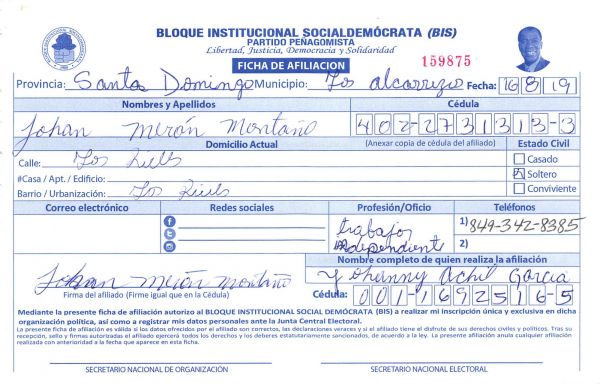 BLOQUE INSTITUCIONAL SOCIALDEMÓCRATA (BIS)
PARTIDO PEÑAGOMISTA
Libertad, Justicia, Democracia y Solidaridad
FICHA DE AFILIACION
159875
Provincia: Santo Domingo Municipio: Los alcarrizo Fecha: 16 8 19
Nombres y Apellidos Cédula
Johan Merón Montaño 402-2731313-3
Domicilio Actual (Anexar copia de cédula del afiliado) Estado Civil
Calle: Los Casado
#Casa / Apt. / Edificio: Soltero
Barrio / Urbanización: Los Conviviente
Correo electrónico Redes sociales Profesión/Oficio Teléfonos
trabajor 1) 849-342-8385
independiente 2)
Nombre completo de quien realiza la afiliación
Johan Merón Montaño Yohanny Garcia
Firma del afiliado (Firme igual que en la Cédula) Cédula: 001-1692516-5
Mediante la presente ficha de afiliación autorizo al BLOQUE INSTITUCIONAL SOCIAL DEMÓCRATA (BIS) a realizar mi inscripción única y exclusiva en dicha
organización política, así como a registrar mis datos personales ante la Junta Central Electoral.
La presente ficha de afiliación es válida si los datos ofrecidos por el afiliado son correctos, las declaraciones veraces y si el afiliado tiene el disfrute de sus derechos civiles y políticos. Tras su
recepción, sello y firmas autorizadas el afiliado ejercerá todos los derechos y los deberes estatutariamente sancionados, de acuerdo a la ley. La presente afiliación anula cualquier afiliación
realizada con anterioridad a la fecha que aparece en esta ficha.
SECRETARIO NACIONAL DE ORGANIZACIÓN SECRETARIO NACIONAL ELECTORAL